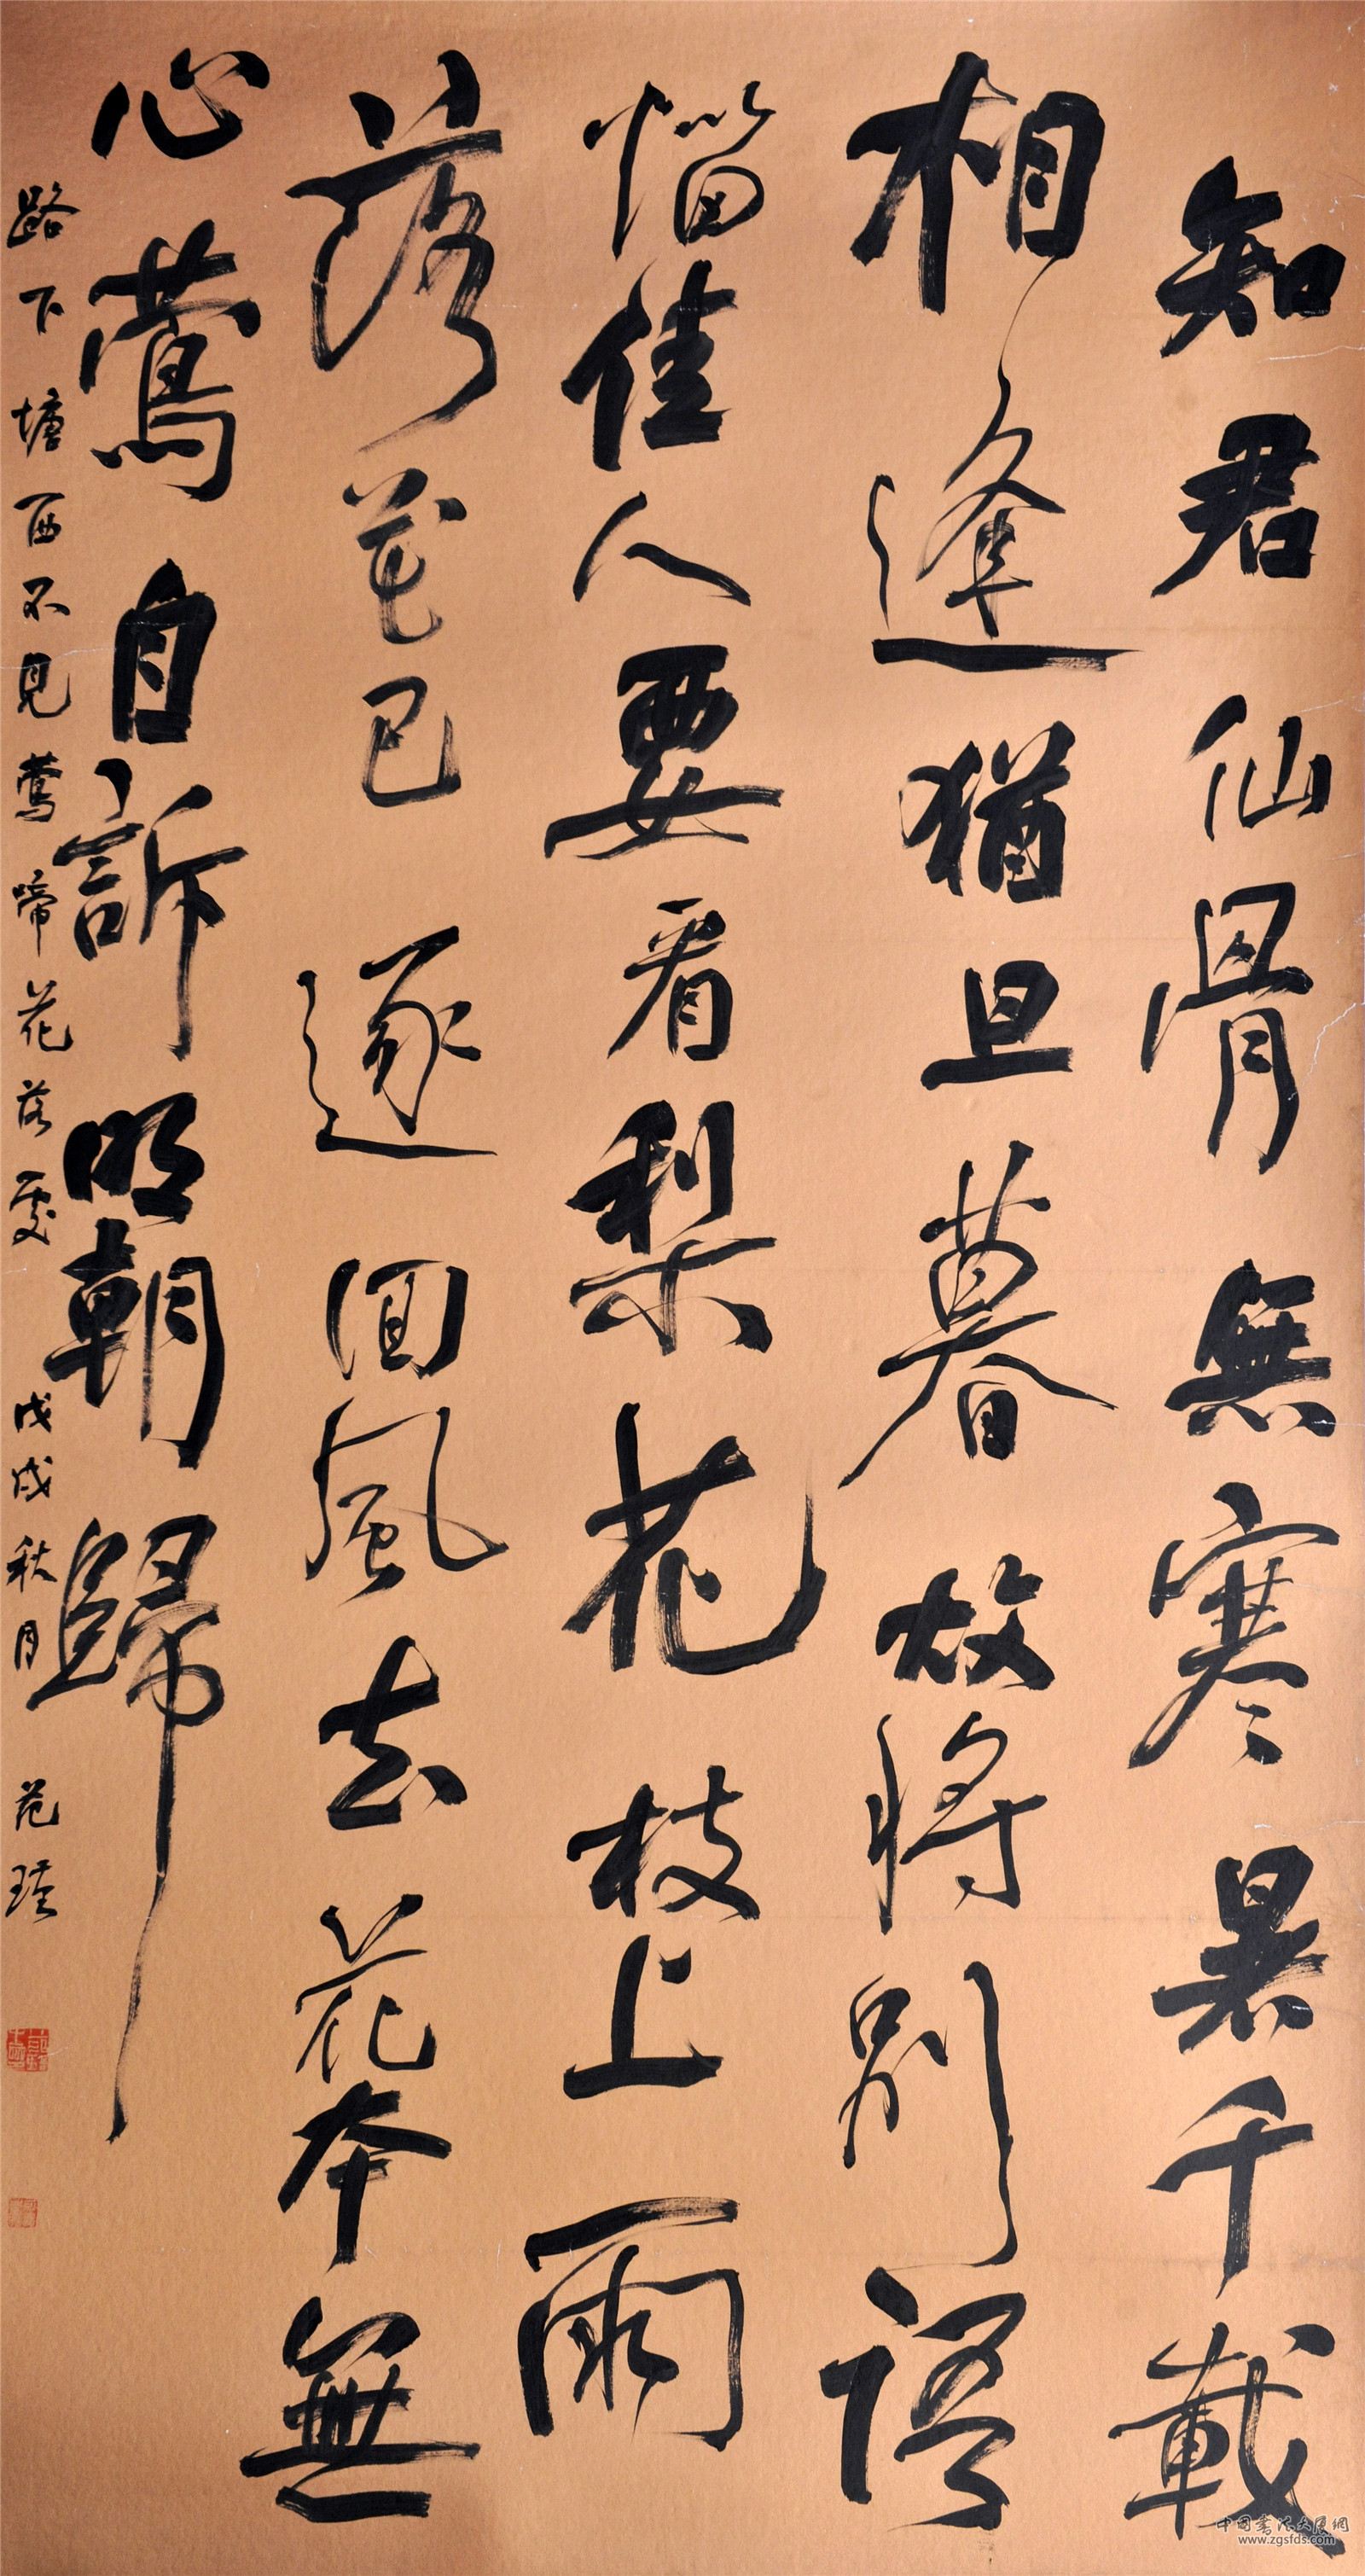 知君仙骨無寒暑千載
相逢猶旦暮故將別語
惱佳人要看梨花枝上雨
落花已逐回風去花本無
心鶯自訴明朝歸
路下塘西不見鶯啼花落處 戊戌秋月 范
中國書法大廈網
www.zgsfds.com